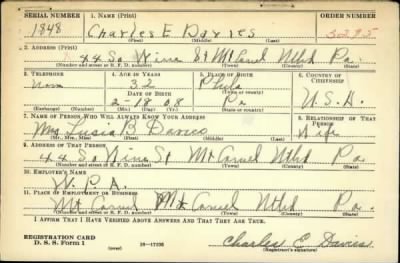 SERIAL NUMBER 1. NAME (Print) ORDER NUMBER
1848 Charles E Davies 3295
(First) (Middle) (Last)
2. ADDRESS (Print)
44 So Vine St Mt Carmel Nthld Pa.
(Number and street or R. F. D. number) (Town) (County) (State)
3. TELEPHONE 4. AGE IN YEARS 5. PLACE OF BIRTH 6. COUNTRY OF CITIZENSHIP
None 32 Phila
DATE OF BIRTH (Town or county)
2-18 08 Pa U.S.A.
(Exchange) (Number) (Mo.) (Day) (Yr.) (State or country)
7. NAME OF PERSON WHO WILL ALWAYS KNOW YOUR ADDRESS 8. RELATIONSHIP OF THAT PERSON
Mrs Susia B Davies Wife
(Mr., Mrs., Miss) (First) (Middle) (Last)
9. ADDRESS OF THAT PERSON
44 So Vine St Mt Carmel Nthld Pa
(Number and street or R. F. D. number) (Town) (County) (State)
10. EMPLOYER'S NAME
W.P.A.
11. PLACE OF EMPLOYMENT OR BUSINESS
Mt Carmel Mt Carmel Nthld Pa.
(Number and street or R. F. D. number) (Town) (County) (State)
I AFFIRM THAT I HAVE VERIFIED ABOVE ANSWERS AND THAT THEY ARE TRUE.
REGISTRATION CARD
D. S. S. Form 1 (over) 16-17105 Charles E Davies
(Registrant's signature)